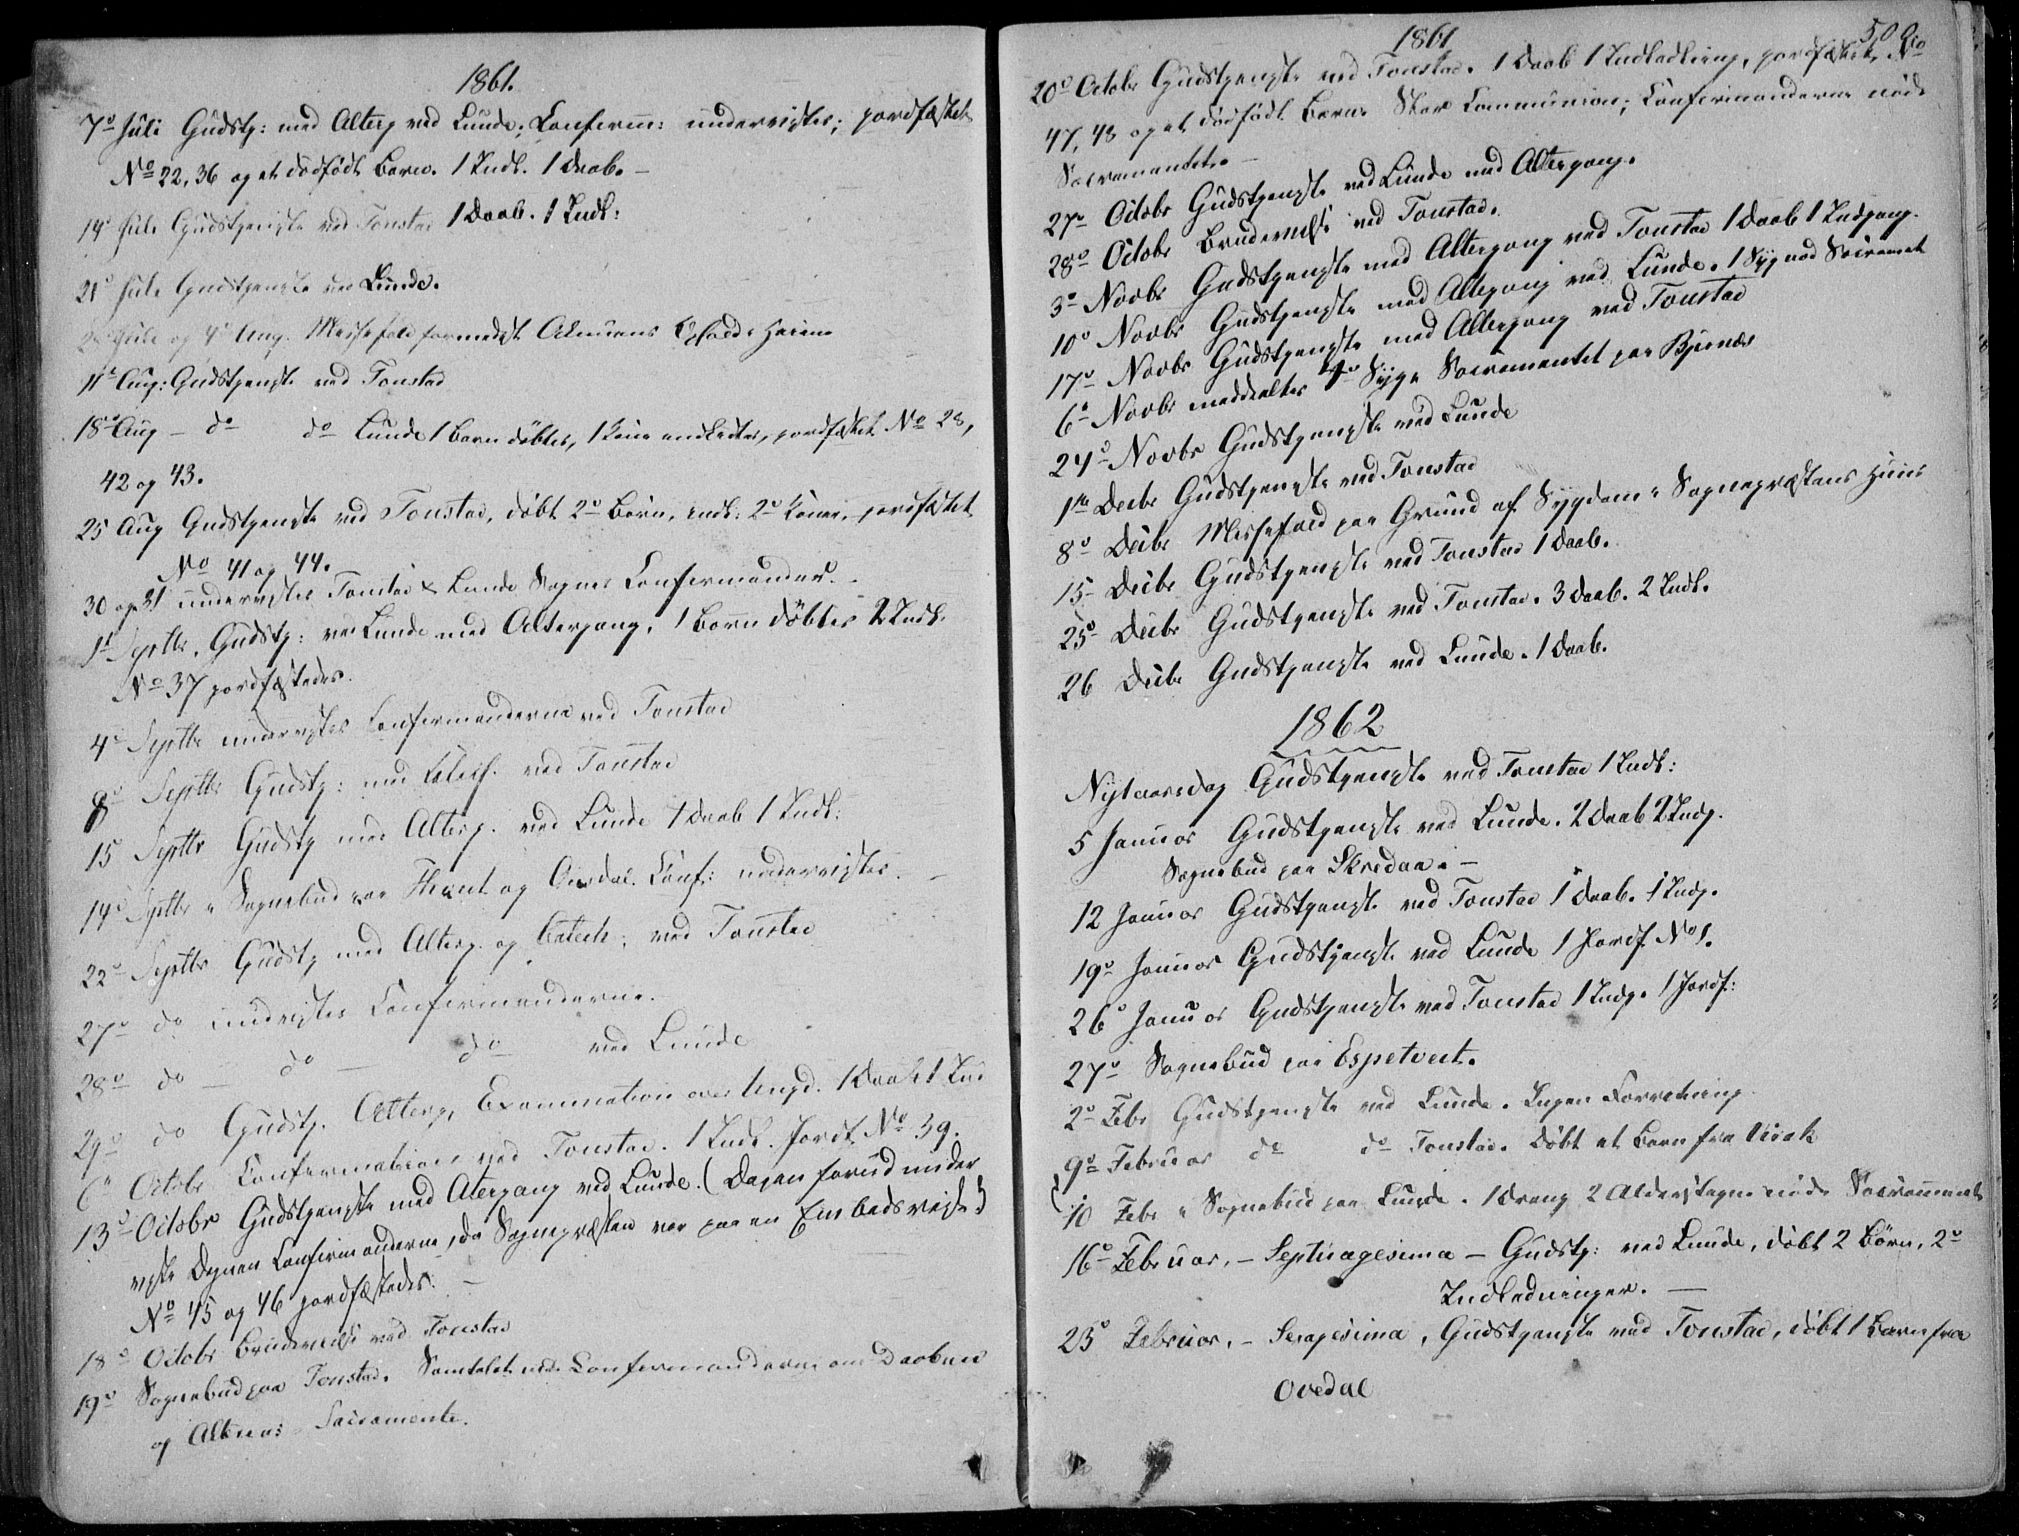 1861.
7de Juli Gudstj: med Alterg ved Lunde; Confirm: undervistes; jordfæstet
No 22, 36 og et dödfödt Barn. 1 Indl. 1 Daab. –
14de Juli Gudstjeneste ved Tonstad 1 Daab. 1 Indl:
21de Juli Gudstjeneste ved Lunde.
28 Juli og 4de Aug. Messefald formedelst Ophold i Heien
11te Aug: Gudstjeneste ved Tonstad
18de Aug – do do Lunde 1 Barn döbtes, 1 Kone indledtes, jordfæstet No 28,
42 og 43.
25 Aug Gudstjeneste ved Tonstad, döbt 2de Börn, indl: 2de Koner, jordfæstet
No 41 og 44.
30 og 31 undervistes Tonstad & Lunde Sognes Confirmander. –
1ste Septbr. Gudstj: ved Lunde med Altergang, 1 Barn döbtes 2 Indl.
No 37 jordfæstedes.
4de Septbr undervistes Confirmanderne ved Tonstad
8de Septbr Gudstj: med Katek. ved Tonstad
15 Septbr Gudstj med Alterg. ved Lunde 1 Daab 1 Indl:
14de Septbr i Sognebud paa og Ousdal. Conf: undervistes. –
22de Septbr Gudstj med Alterg. og Catech: ved Tonstad
27de do undvistes Confirmanderne. –
28de do – do – do ved Lunde
29de do Gudstj. Alterg, Examination over Ungd. 1 Daab 1 Ind
6te Octobr Confirmation ved Tonstad. 1 Indl. Jordf. No 39.
13de Octobr Gudstjeneste med Atergang ved Lunde. (Dagen forud under
viste Degnen Confirmanderne, da Sognepræsten var paa en Embedsreise)
No 45 og 46 jordfæstedes. –
18de Octobr Brudevielse ved Tonstad
19de Sognebud paa Tonstad. Samtalet med Confirmanderne om Daabens
og Alterens Sacramente.
1861
509
20de Octobr Gudstjeneste ved Tonstad. 1 Daab 1 Indledning, jordfæstet No
47, 48 og et dödfödt Barn. Stor Communion; Confirmanderne nöd
Sacramentet. –
27de Octobr Gudstjeneste ved Lunde med Altergang.
28de Octobr Brudevielse ved Tonstad.
3de Novbr Gudstjeneste med Altergang ved Tonstad 1 Daab 1 Indgang.
10de Novbr Gudstjeneste med Altergang ved Lunde. 1 Syg nød Sacramet
17de Novbr Gudstjeneste med Altergang ved Tonstad
6te Novbr meddeeltes Syge Sacramentet paa Bjunæs
24de Novbr Gudstjeneste ved Lunde
1ste Decbr Gudstjeneste ved Tonstad
8de Decbr Messefald paa Grund af Sygdom i Sognepræstens Huus
15 Decbr Gudstjeneste ved Tonstad 1 Daab.
25de Decbr Gudstjeneste ved Tonstad. 3 Daab. 2 Indl.
26 Decbr Gudstjeneste ved Lunde. 1 Daab.
1862
Nytaarsdag Gudstjeneste ved Tonstad 1 Indl:
5 Januar Gudstjeneste ved Lunde. 2 Daab 2 Indg.
Sognebud paa Skredaa. –
12 Januar Gudstjeneste ved Tonstad 1 Daab. 1 Indg.
19de Januar Gudstjeneste ved Lunde 1 Jordf No 1.
26de Januar Gudstjeneste ved Tonstad 1 Indg. 1 Jordf:
27de Sognebud paa Espetveit.
2de Febr Gudstjeneste ved Lunde. Ingen Forretning
9de Februar do do Tonstad. Döbt et Barn fra Virak
10 Febr i Sognebud paa Lunde. 1 Dreng 2 Alderstegne nöd Sacramente
16de Februar, – Septuagesima – Gudstj: ved Lunde, döbt 2 Börn, 2de
Indledninger. –
23de Februar, – Sexagesima, Gudstjeneste ved Tonstad, döbt 1 Barn fra
Ovedal